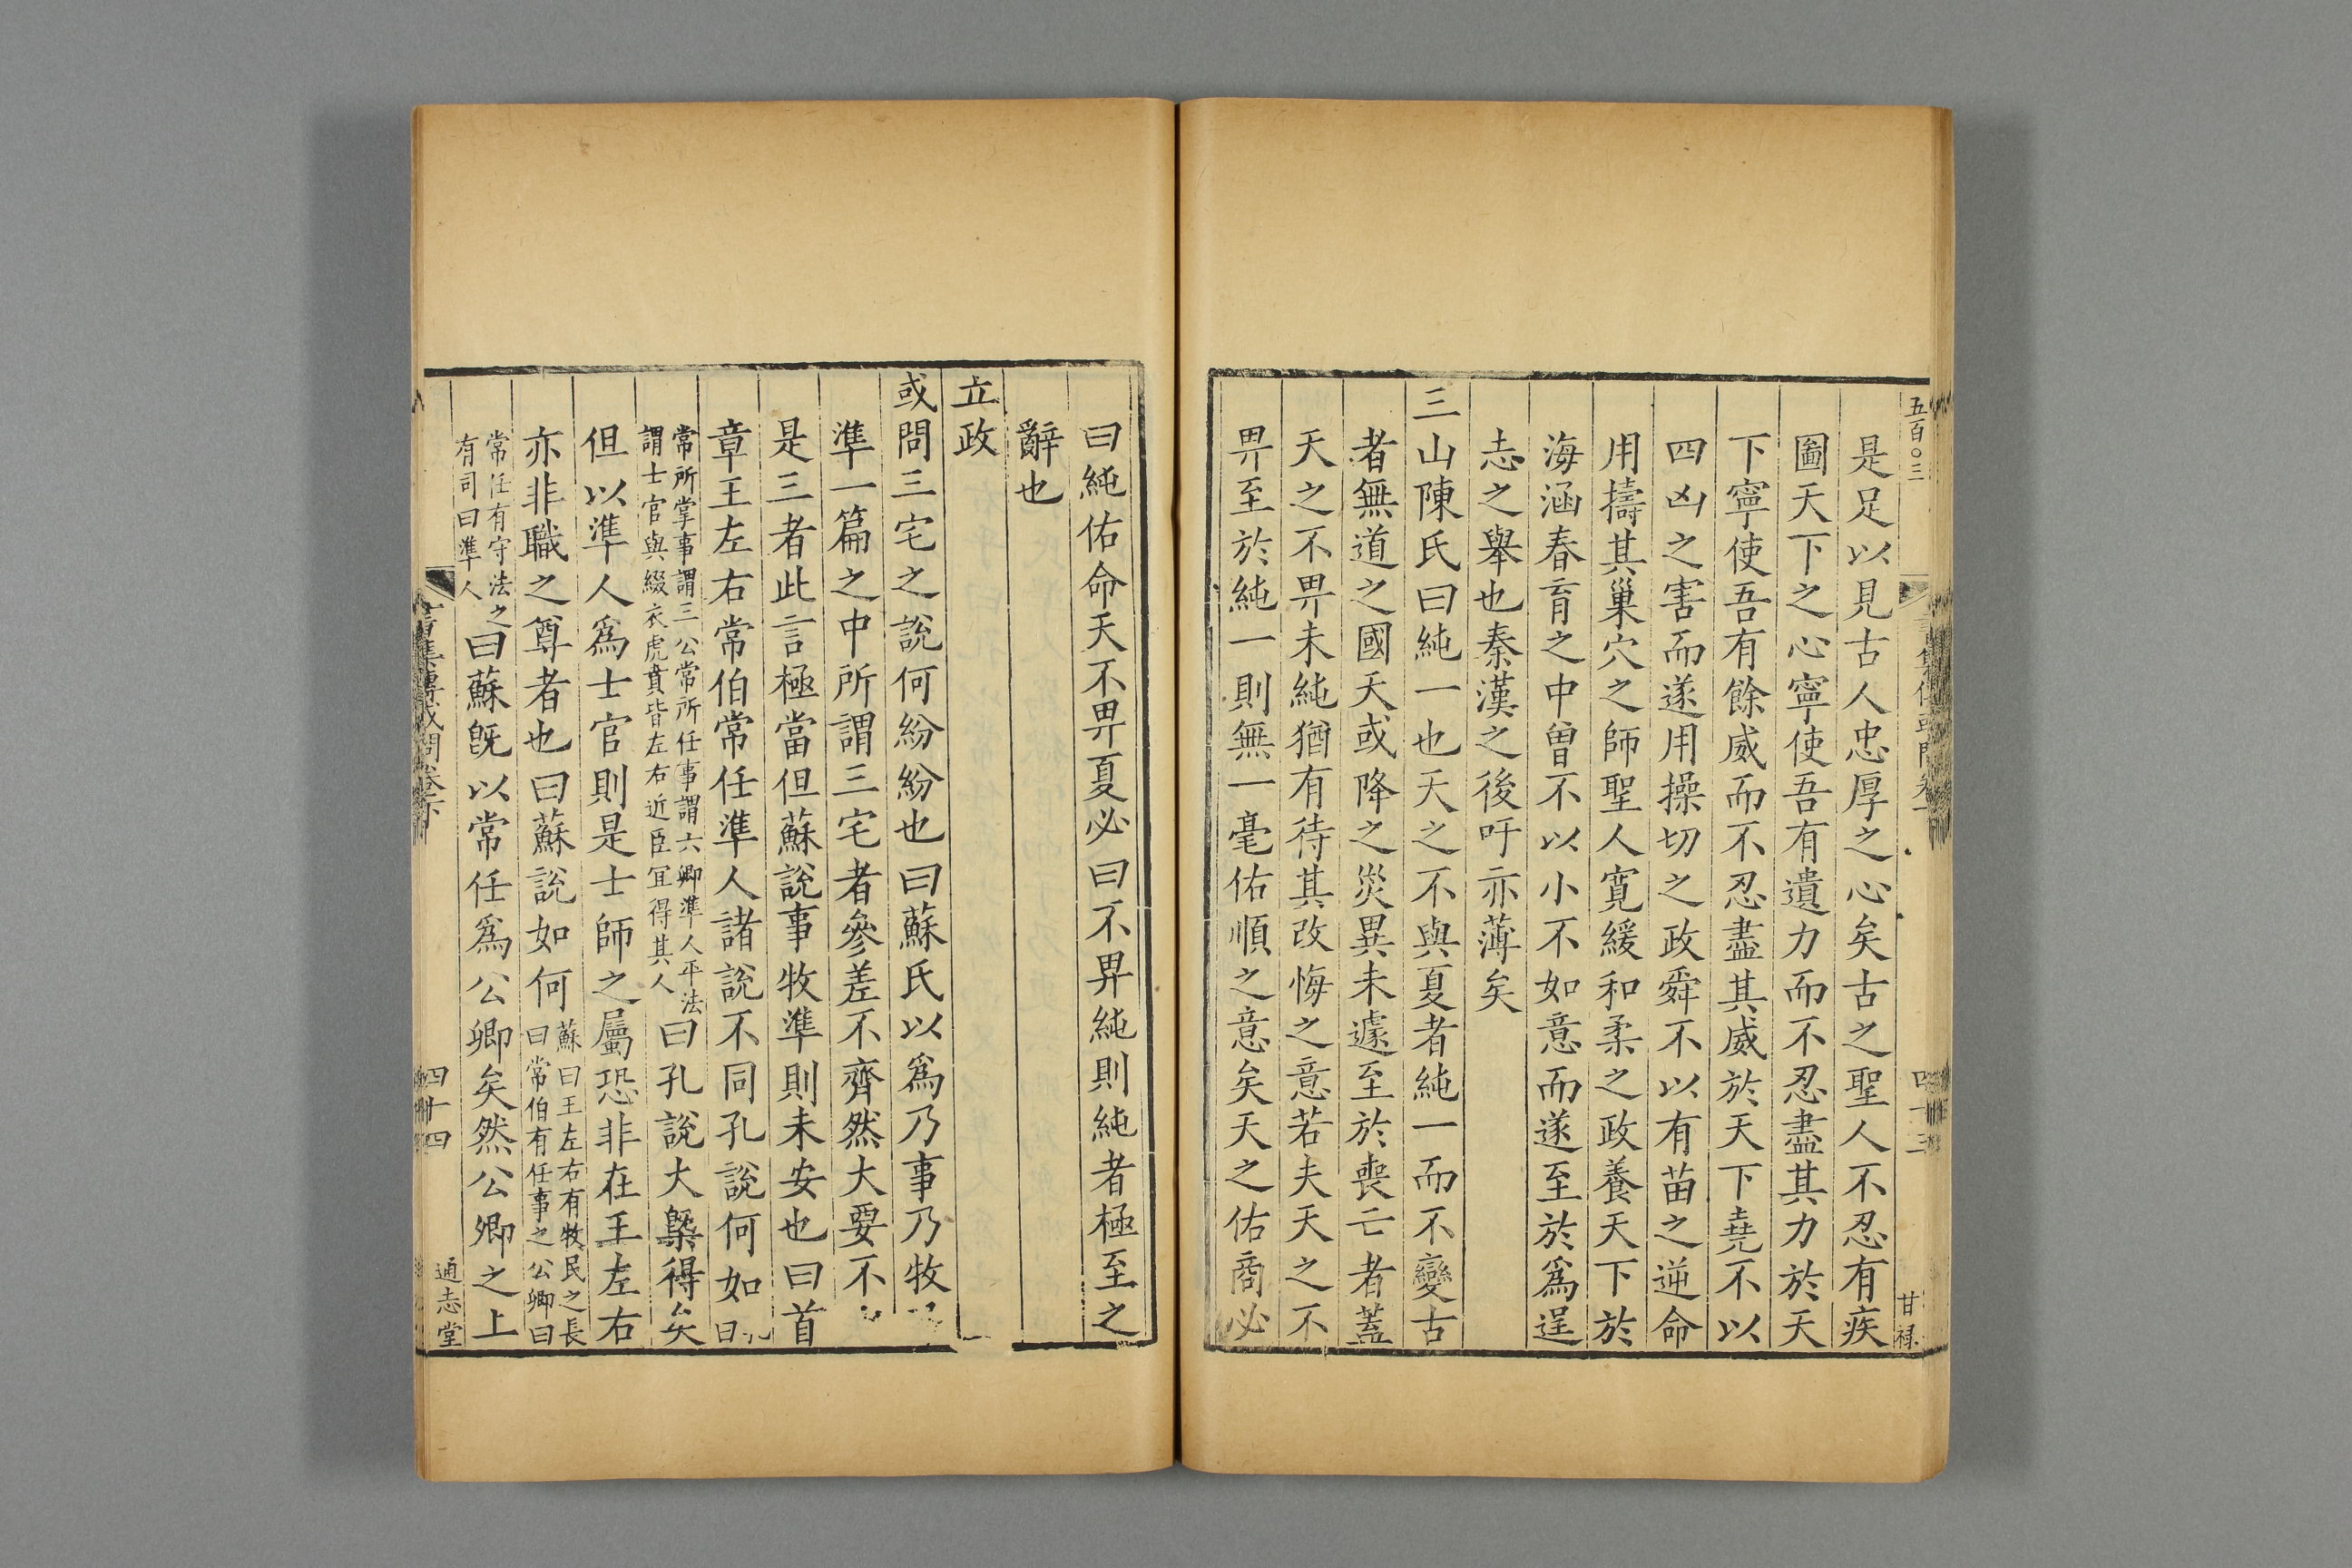 五百〇三
甘禄
是足以見古人忠厚之心矣古之聖人不忍有疾
圖天下之心寧使吾有遺力而不忍盡其力於天
下寧使吾有餘威而不忍盡其威於天下堯不以
四凶之害而遂用操切之政舜不以有苗之逆命
用擣其巢穴之師聖人寛緩和柔之政養天下於
海涵春育之中曽不以小不如意而遂至於爲逞
志之舉也秦漢之後吁亦薄矣
三山陳氏曰純一也天之不與夏者純一而不變古
者無道之國天或降之災異未遽至於喪亡者蓋
天之不畀未純猶有待其改悔之意若夫天之不
畀至於純一則無一毫佑順之意矣天之佑商必
曰純佑命天不畀夏必曰不畀純則純者極至之
辭也
立政
或問三宅之說何紛紛也曰蘇氏以爲乃事乃牧
準一篇之中所謂三宅者參差不齊然大要不
是三者此言極當但蘇說事牧準則未安也曰首
章王左右常伯常任準人諸說不同孔說何如曰
常所掌事謂三公常所任事謂六卿準人平法
謂士官與綴衣虎賁皆左右近臣宜得其人
曰孔說大槩得矣
但以準人爲士官則是士師之屬恐非在王左右
亦非職之尊者也曰蘇說如何
蘇曰王左右有牧民之長
曰常伯有任事之公卿曰
常任有守法之
有司曰準人
曰蘇旣以常任爲公卿矣然公卿之上
書集傳或問卷下
四十四
通志堂